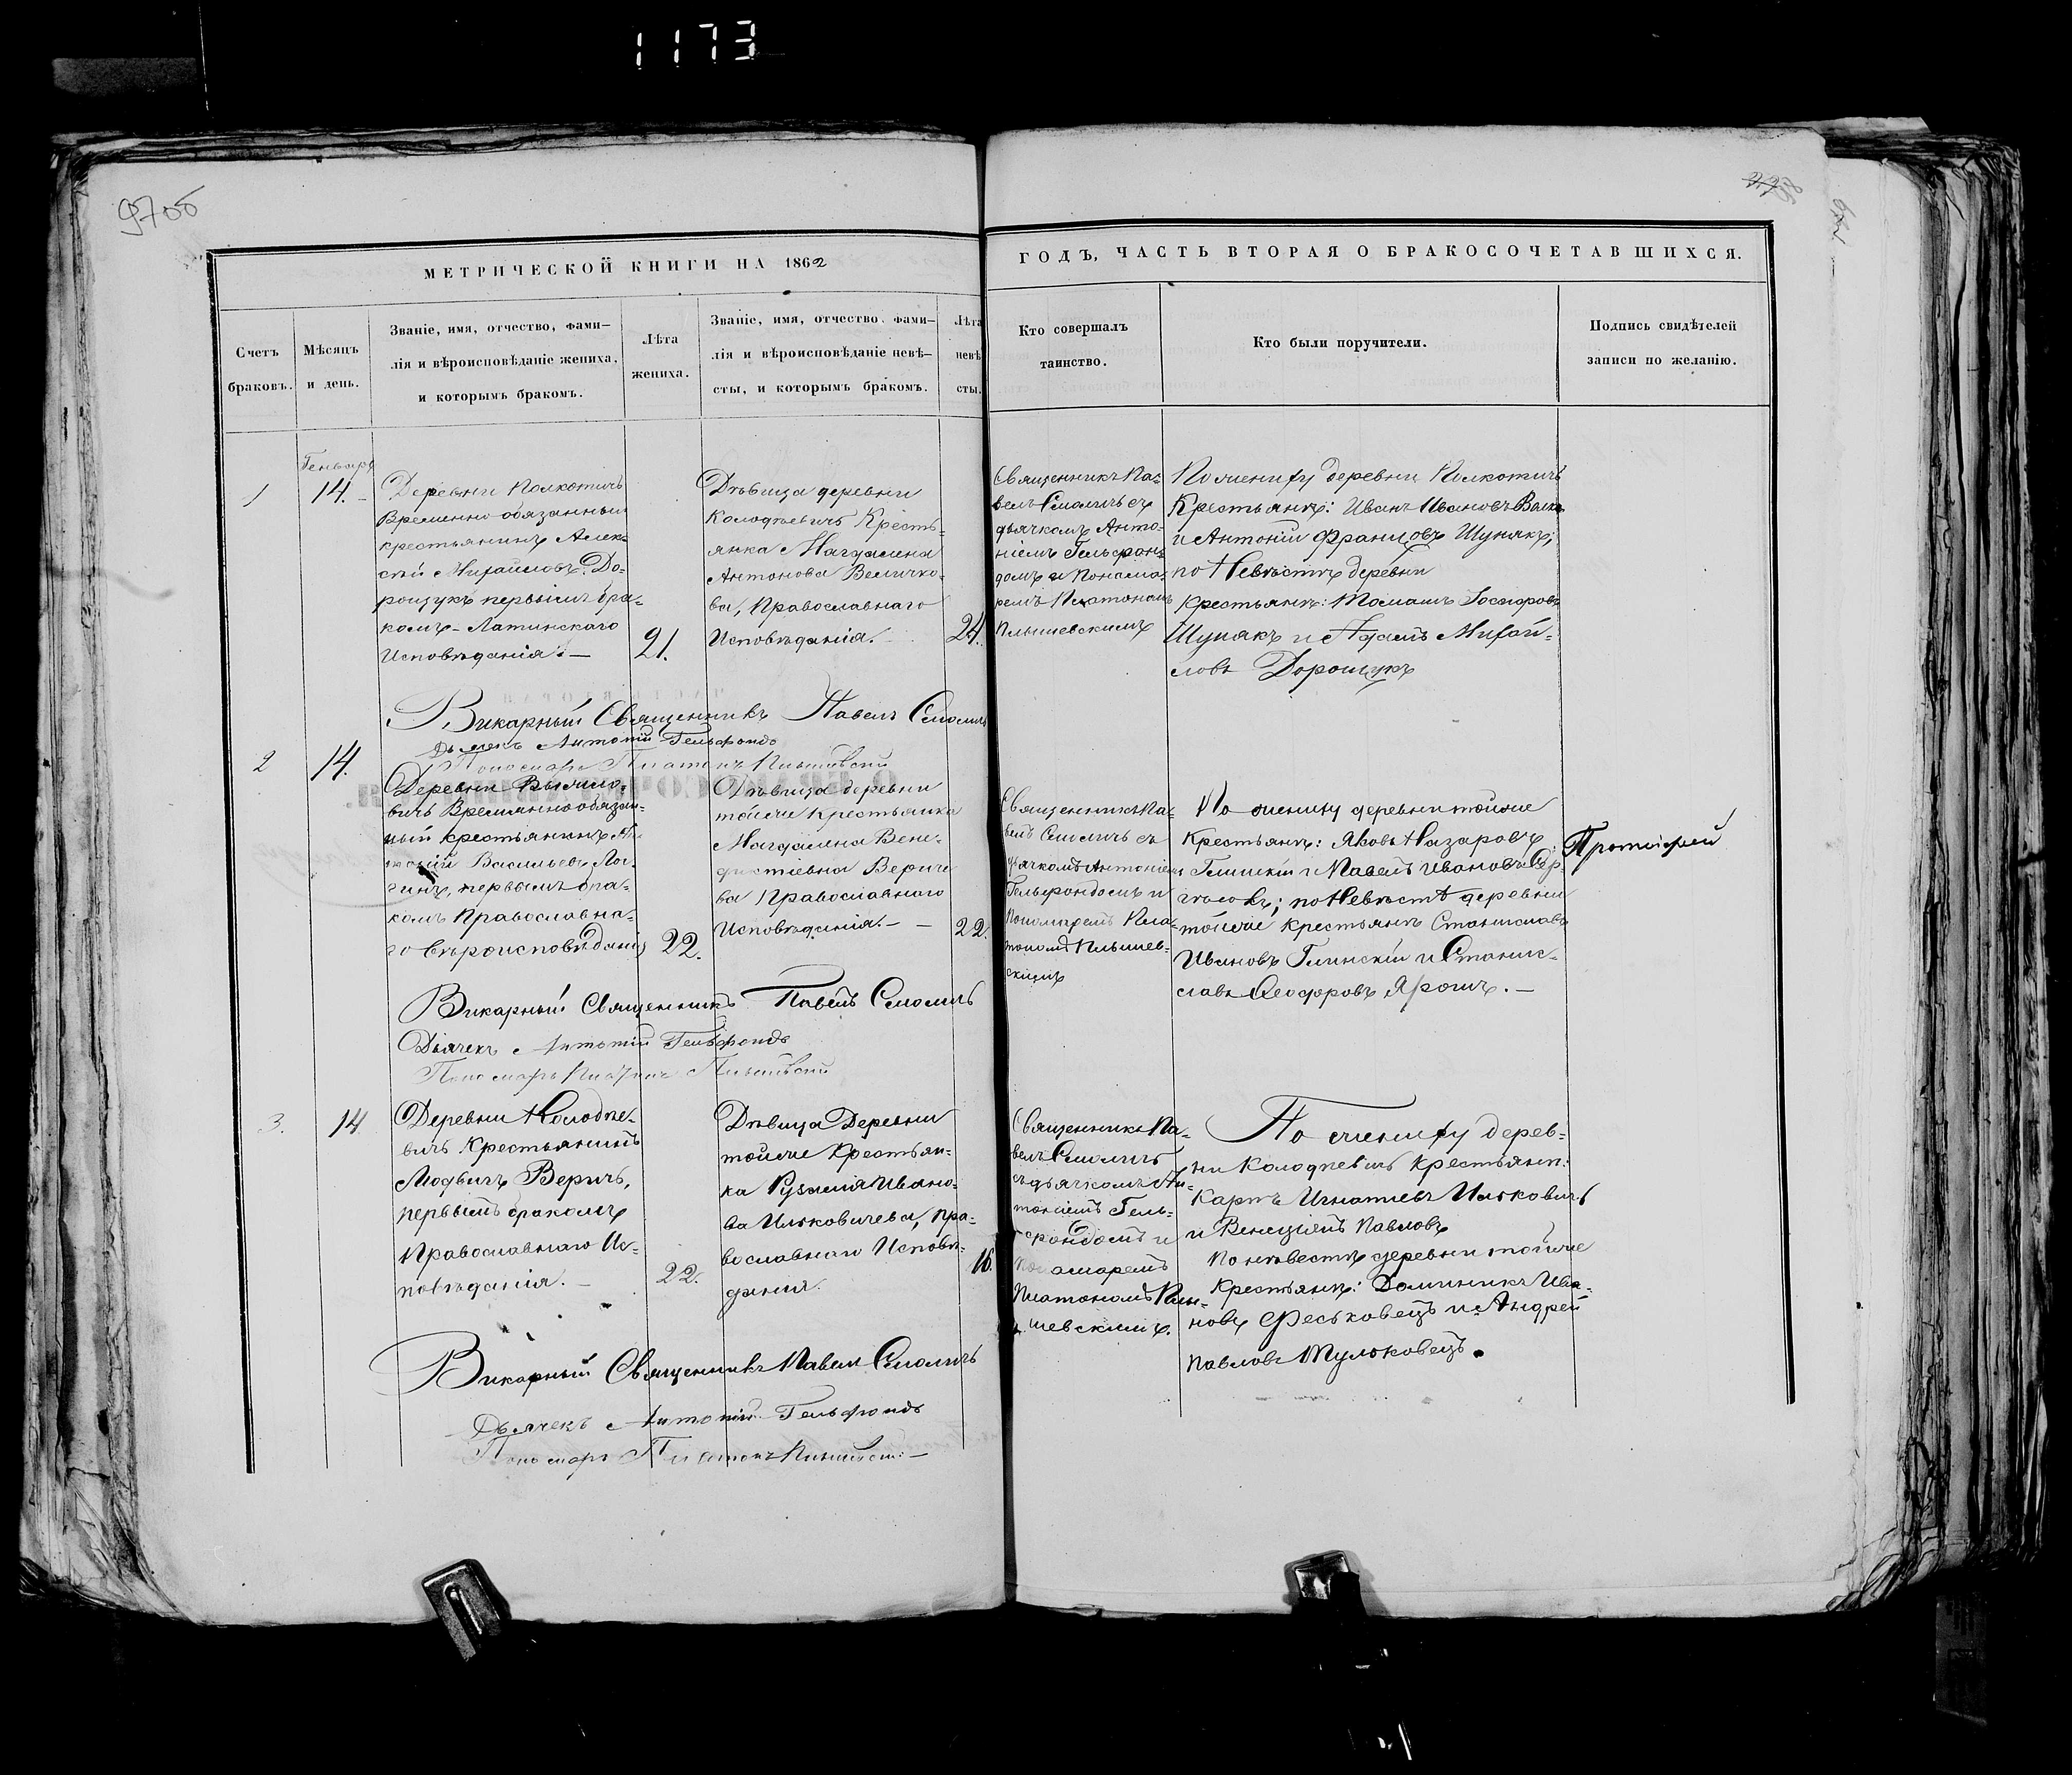 1173
97об
МЕТРИЧЕСКОЙ КНИГИ НА 1862
ГОДЪ, ЧАСТЬ ВТОРАЯ О БРАКОСОЧЕТАВШИХСЯ.
Счетъ
браковъ.
Мѣсяцъ
и день.
Званіе, имя, отчество, фами–
лія и вѣроисповѣданіе жениха,
и которымъ бракомъ.
Лѣта
жениха.
Званіе, имя, отчество, фами–
лія и вѣроисповѣданіе невѣ–
сты, и которымъ бракомъ.
Лѣта
невѣ
сты.
Кто совершалъ
таинство.
Кто были поручители.
Подпись свидѣтелей
записи по желанію.
1
Генваря
14.
Деревни Полкотичъ
Временно обязанный
крестьянинъ Алек-
сѣй Михайловъ До-
рощукъ первымъ бра-
комъ Латинскаго
Исповѣданія. —
21.
Дѣвица деревни
Колоднѣвичъ Кресть-
янка Магдалена
Антонова Величко-
ва, Православнаго
Исповѣданія.
24.
Священникъ Па-
велъ Смоличъ съ
дьячкомъ Анто-
ніемъ Гельфон-
домъ и Понома-
ремъ Платономъ
Плышевскимъ
По жениху деревни Полкотичъ
Крестьяне: Иванъ Ивановъ
и Антоній Францовъ Шунякъ;
по Невѣстѣ деревни
крестьяне: Томашъ
Шунякъ и Адамъ Михай-
ловъ Дорощукъ
Викарный Священникъ Павелъ Смоличъ
Дьячекъ Антоній Гельфондъ
Пономарь Платонъ
2
14.
Деревни
вичъ Временнообязан-
ный крестьянинъ Ан
Васильевъ
первымъ бра-
комъ Православна-
го вѣроисповѣданія
22.
Дѣвица деревни
тойже Крестьянка
Магдалина Вене-
диктіевна Верич
ва Православнаго
Исповѣданія. —
22.
Священникъ Па-
велъ Смоличъ съ
дьячкомъ Антоніем
Гельфондомъ и
Пономаремъ Пла-
тономъ Плышев-
скимъ
По жениху деревни тойже
Крестьяне: Яковъ Назаровъ
Глинскій и Павелъ Ивановъ
по Невѣстѣ деревни
тойже крестьяне Станиславъ
Ивановъ Глинскій и Станис-
лавъ Ѳеодоровъ Ярошъ. —
Протоіерей
Викарный Священникъ Павелъ Смоличъ
Дьячекъ Антоній Гельфондъ
Пономарь Платонъ
3.
14
Деревни Колоднѣ-
вичъ Крестьянинъ
Людвигъ Веричъ,
первымъ бракомъ
Православнаго Ис-
повѣданія. —
22.
Дѣвица Деревни
тойже Крестьян-
ка Рузалія Ивано-
ва Ильковичева, Пра-
вославнаго Исповѣ-
данія.
16.
Священникъ Па-
велъ Смоличъ
съ дьячкомъ Ан-
тоніемъ Гель-
фондомъ и
Понамаремъ
Платономъ Плы-
шевскимъ.
По жениху дерев-
ни Колоднѣвичъ крестьяне:
Карпъ Игнатіевъ Ильковичъ
и Павловъ
По невестѣ деревни тойже
Крестьяне: Доминикъ Ива-
новъ Феськовецъ и Андрей
Павловъ Мульковецъ.
Викарный Священникъ Павелъ Смоличъ
Дьячекъ Антоній Гельфондъ
Пономарь Платонъ